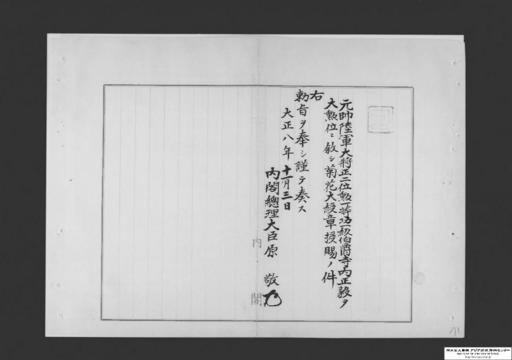 元帥陸軍大将正二位勲一等功一級伯爵寺内正毅ヲ
大勲位ニ敘シ菊花大綬章授賜ノ件
右
勅旨ヲ奉シ謹テ奏ス
大正八年十一月三日
内閣總理大臣原敬
内閣